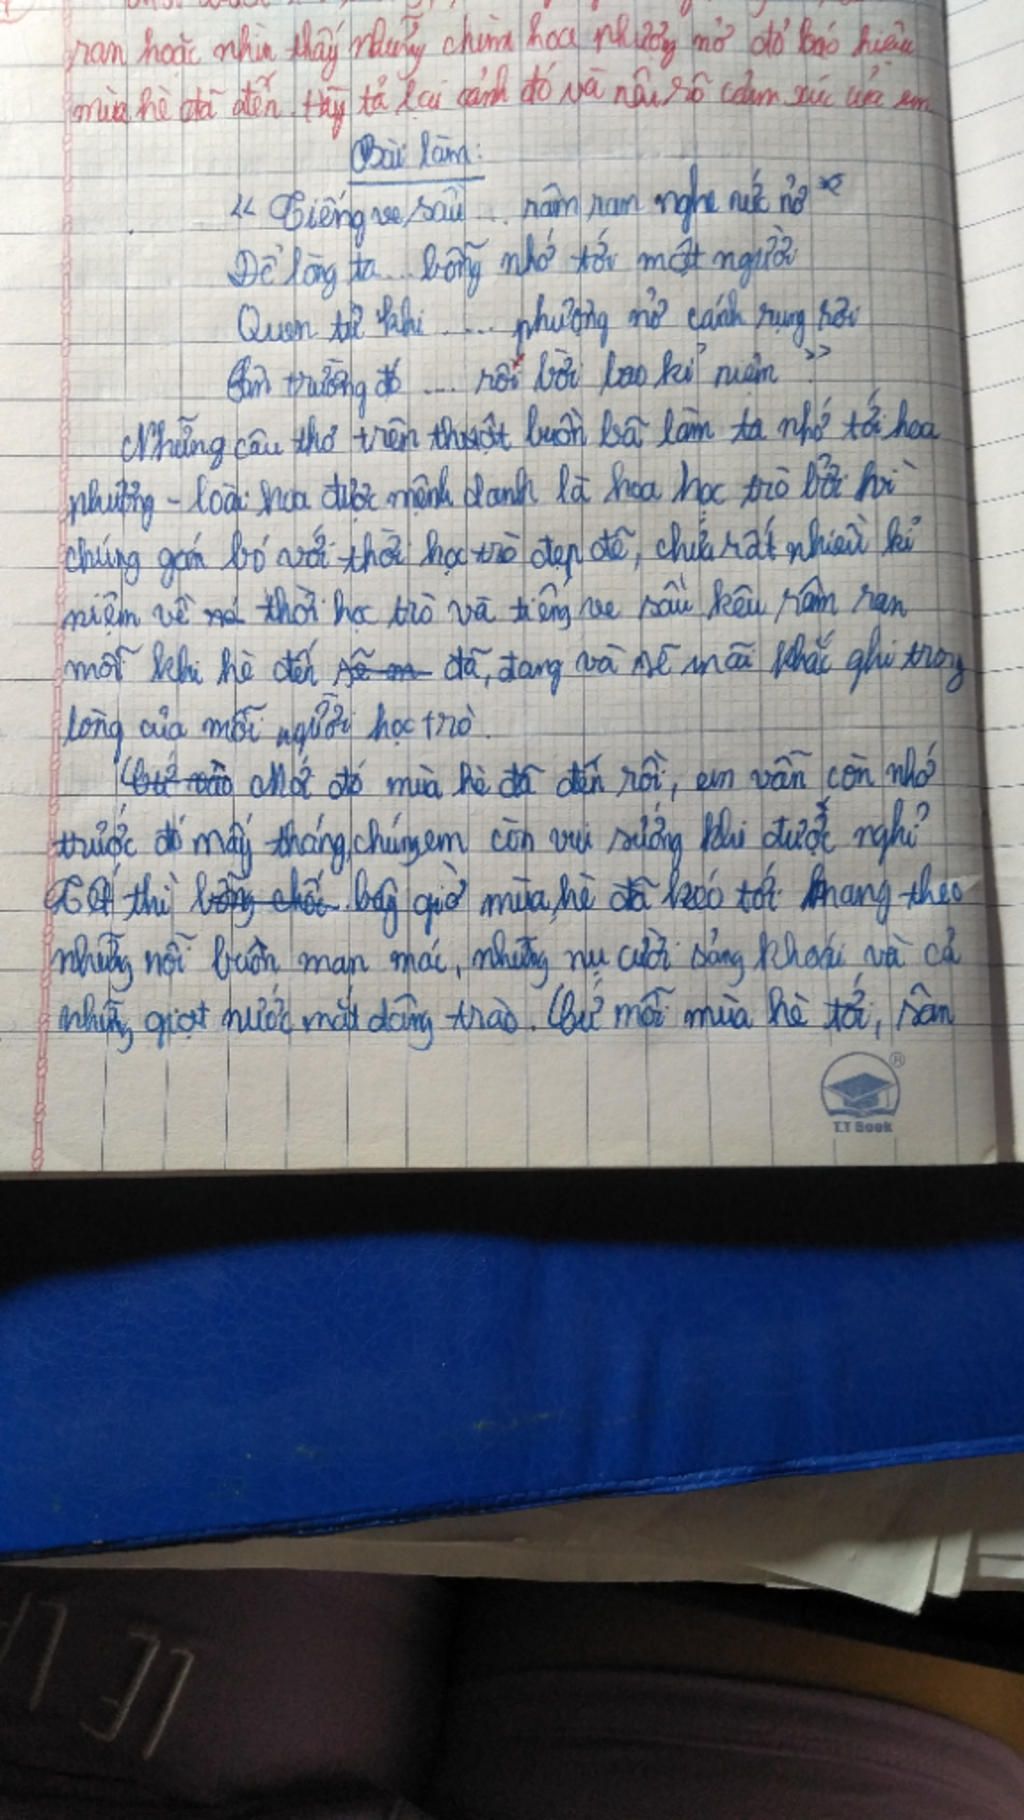 ran hoặc nhìn thấy những chùm hoa phượng nở đỏ báo hiệu
mùa hè đã đến. Hãy tả lại cảnh đó và nêu rõ cảm xúc của em
Bài làm:
"Tiếng ve sầu ... râm ran nghe nức nở
Để lòng ta ... bỗng nhớ tới một người
Quen từ khi .... phượng nở cánh rụng rơi
Sân trường đó .... rối bời bao kỉ niệm"
Những câu thơ trên thuột buồn bã làm ta nhớ tới hoa
phượng - loài hoa được mệnh danh là hoa học trò bởi vì
chúng gắn bó với thời học trò đẹp đẽ, chứa rất nhiều kỉ
niệm về thời học trò và tiếng ve sầu kêu râm ran
mỗi khi hè đến đã, đang và sẽ mãi khắc ghi trong
lòng của mỗi người học trò.
Mới đó mùa hè đã đến rồi, em vẫn còn nhớ
trước đó mấy tháng, chúng em còn vui sướng khi được nghỉ
Tết thì bây giờ mùa hè đã kéo tới mang theo
những nỗi buồn man mác, những nụ cười sảng khoái và cả
những giọt nước mắt dâng trào. Cứ mỗi mùa hè tới, sân
T.T Book